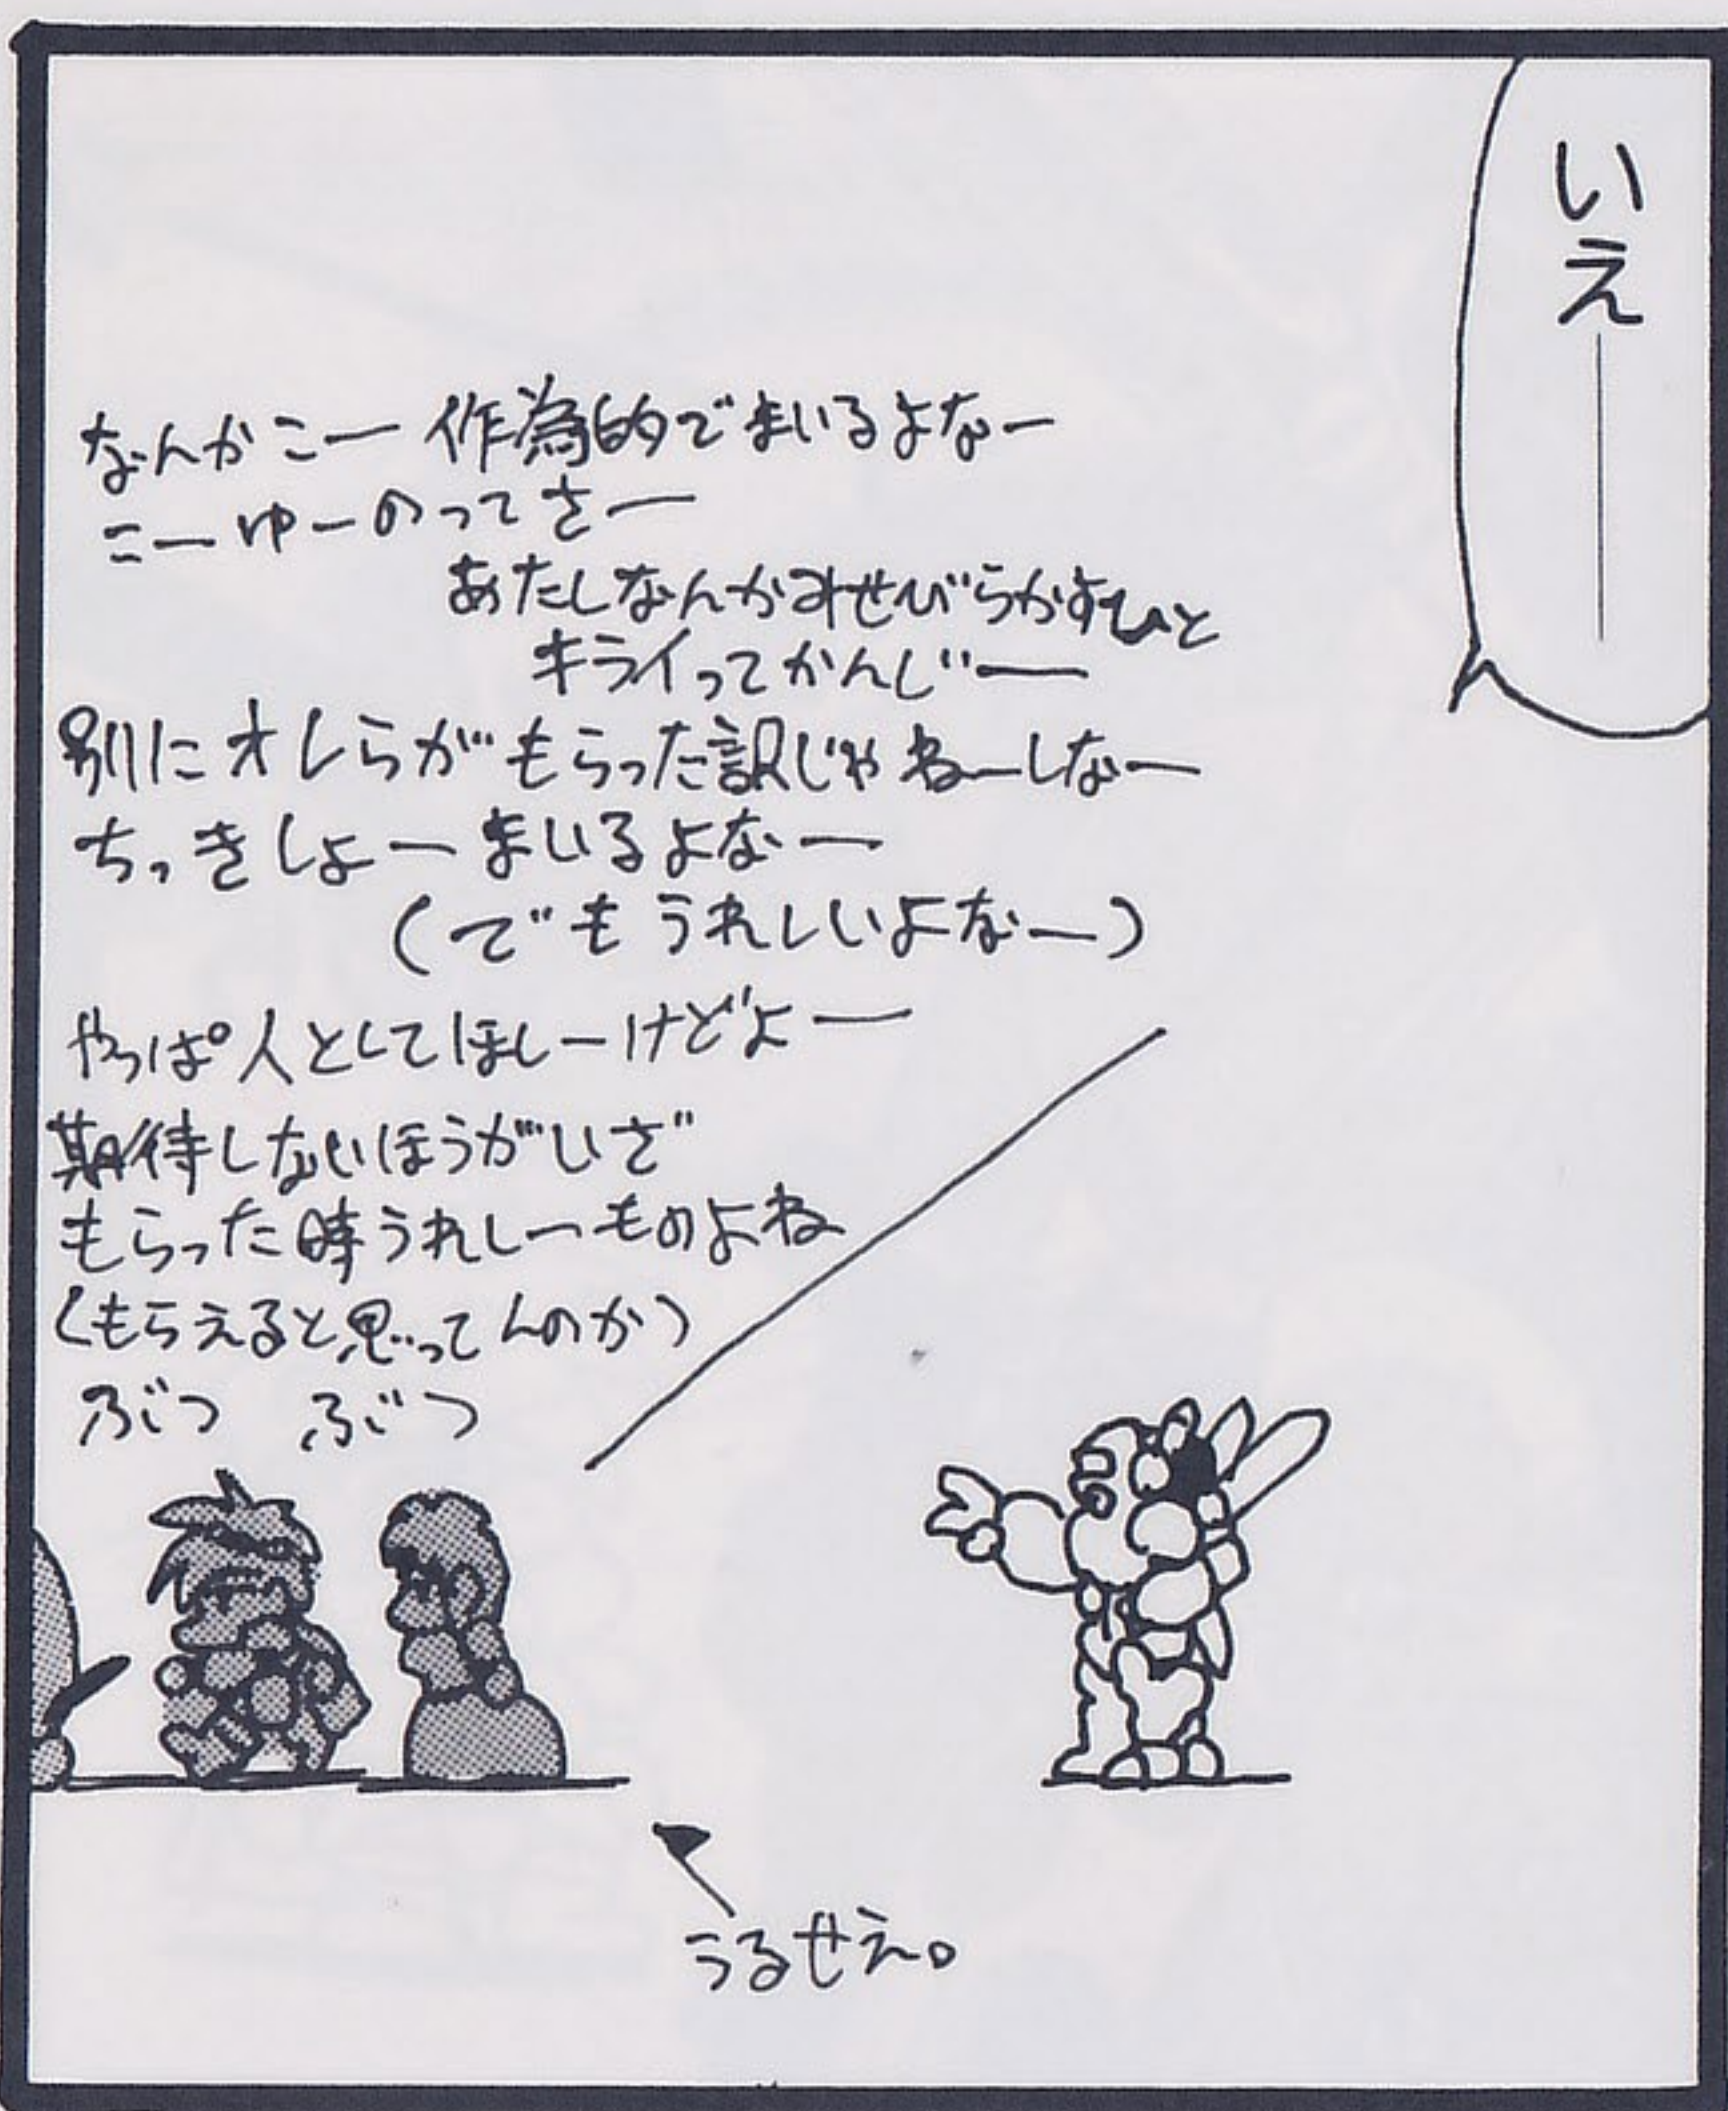 いえ――
なんかこー作為的でまいるよなー
こーゆーのってさー
あたしなんかみせびらかすひと
キライってかんじー
別にオレらがもらった訳じゃねーしなー
ちっきしょーまいるよなー
(でもうれしいよなー)
やっぱ人としてほしーけどよー
期待しないほうがいざ
もらった時うれしーものよね
(もらえると思ってんのか)
ぶつ ぶつ
うるせえ。